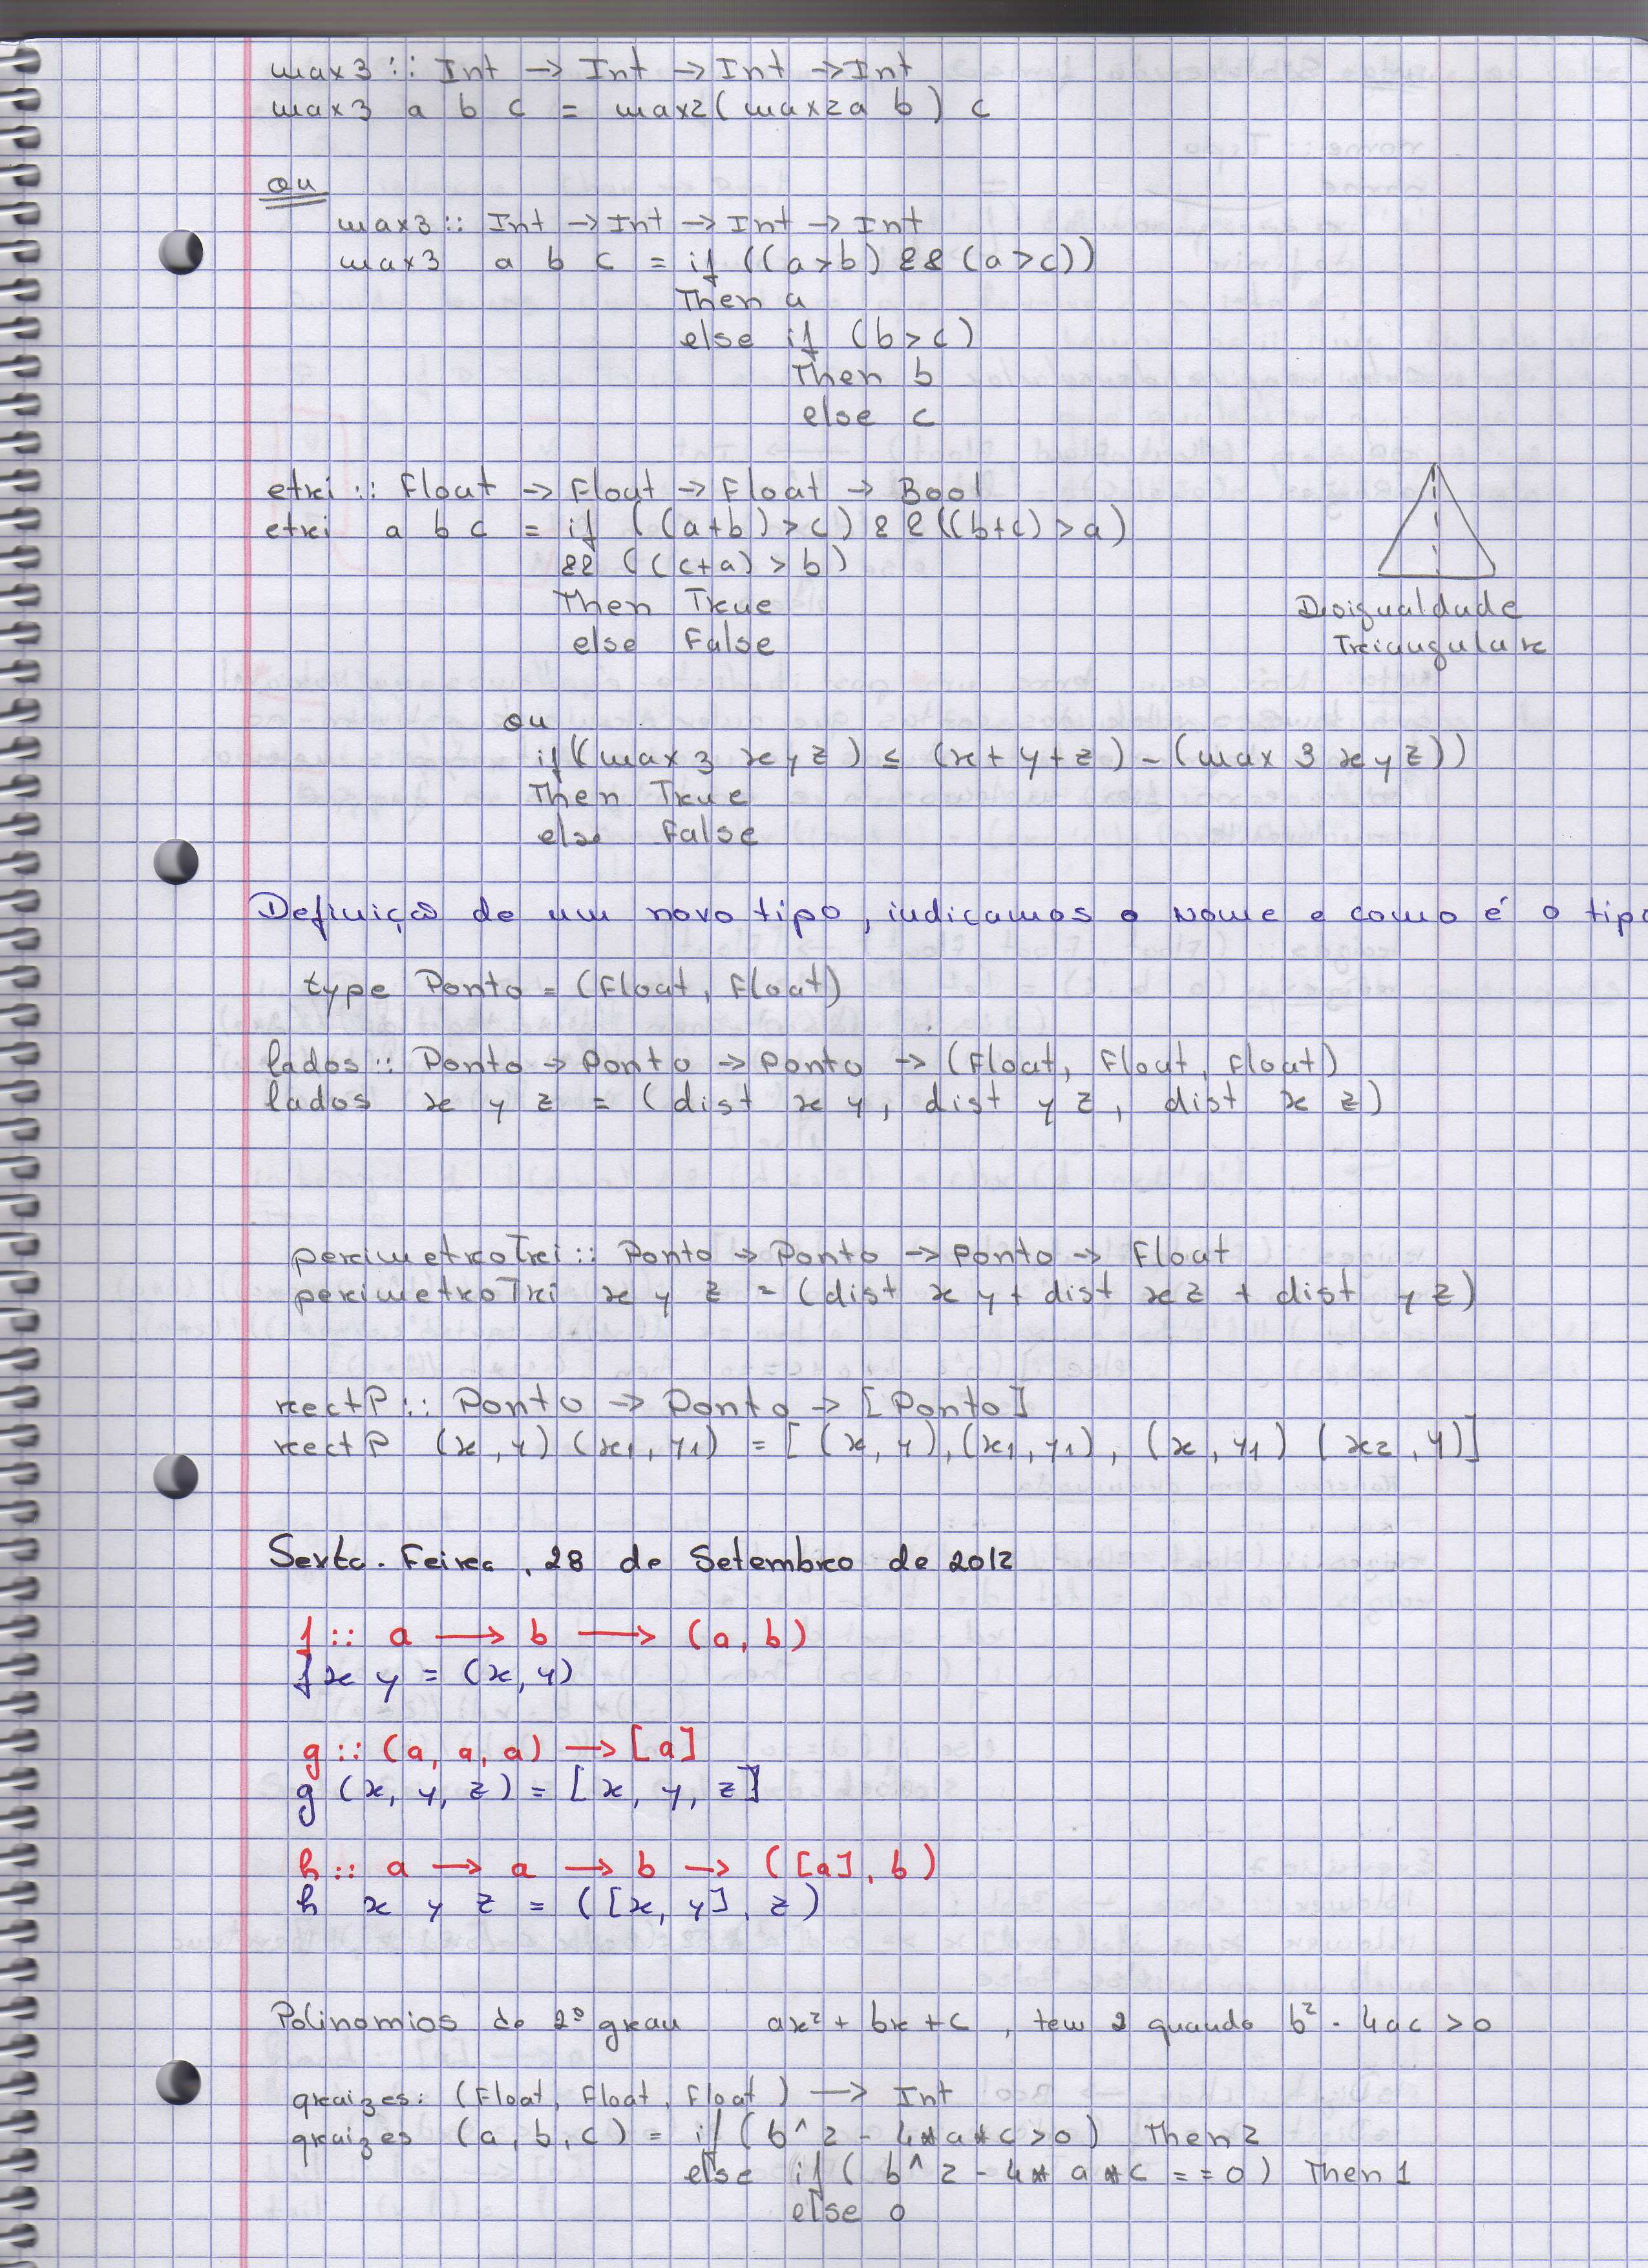 max3 :: Int -> Int -> Int -> Int
max3 a b c = max2 (max2 a b) c
ou
max3 :: Int -> Int -> Int -> Int
max3 a b c = if ((a>b) && (a>c))
Then a
else if (b>c)
Then b
else c
etri :: Float -> Float -> Float -> Bool
etri a b c = if ((a+b)>c) && ((b+c)>a)
&& ((c+a)>b)
Then True
else False
Desigualdade
Triangular
ou
if((max 3 x y z) ≤ (x+y+z) - (max 3 x y z))
Then True
else False
Definição de um novo tipo, indicamos o nome e como é o tipo
type Ponto = (Float, Float)
lados :: Ponto -> Ponto -> Ponto -> (Float, Float, Float)
lados x y z = (dist x y, dist y z, dist x z)
perimetroTri :: Ponto -> Ponto -> Ponto -> Float
perimetroTri x y z = (dist x y + dist x z + dist y z)
rectP :: Ponto -> Ponto -> [Ponto]
rectP (x,y) (x1,y1) = [(x,y),(x1,y1), (x,y1) (x2,y)]
Sexta-Feira, 28 de Setembro de 2012
f :: a -> b -> (a,b)
f x y = (x,y)
g :: (a,a,a) -> [a]
g (x,y,z) = [x,y,z]
h :: a -> a -> b -> ([a],b)
h x y z = ([x,y],z)
Polinomios do 2º grau ax²+bx+c, tem 2 quando b²-4ac>0
qraizes: (Float, Float, Float) -> Int
qraizes (a,b,c) = if (b^2-4*a*c>0) Then 2
else if (b^2-4*a*c==0) Then 1
else 0